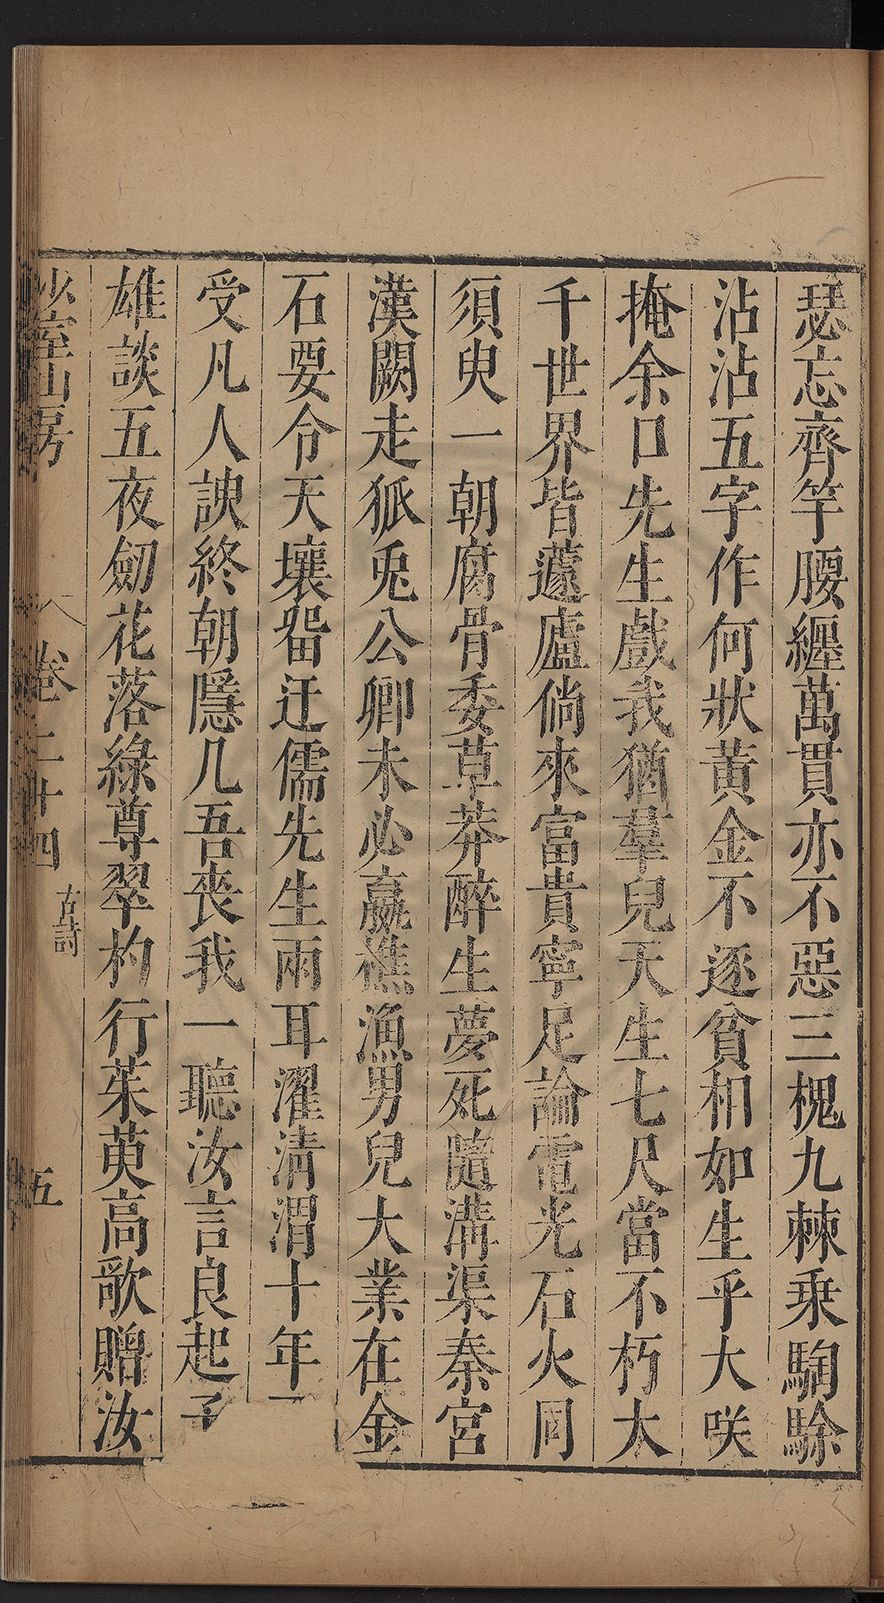 瑟忘齊竽腰纒萬貫亦不惡三槐九棘乗騶騄
沾沾五字作何狀黄金不逐貧相如生乎大咲
掩余口先生戲我猶羣兒天生七尺當不朽大
千世界皆蘧廬倘來富貴寧足論電光石火同
須臾一朝腐骨委草莽醉生夢死隨溝渠秦宮
漢闕走狐兎公卿未必嬴樵漁男兒大業在金
石要令天壤畱迂儒先生兩耳濯清渭十年
受凡人諛終朝隱几吾喪我一聽汝言良起予
雄談五夜劒花落綠尊翠杓行茱萸高歌贈汝
少室山房
卷二十四
古詩
五